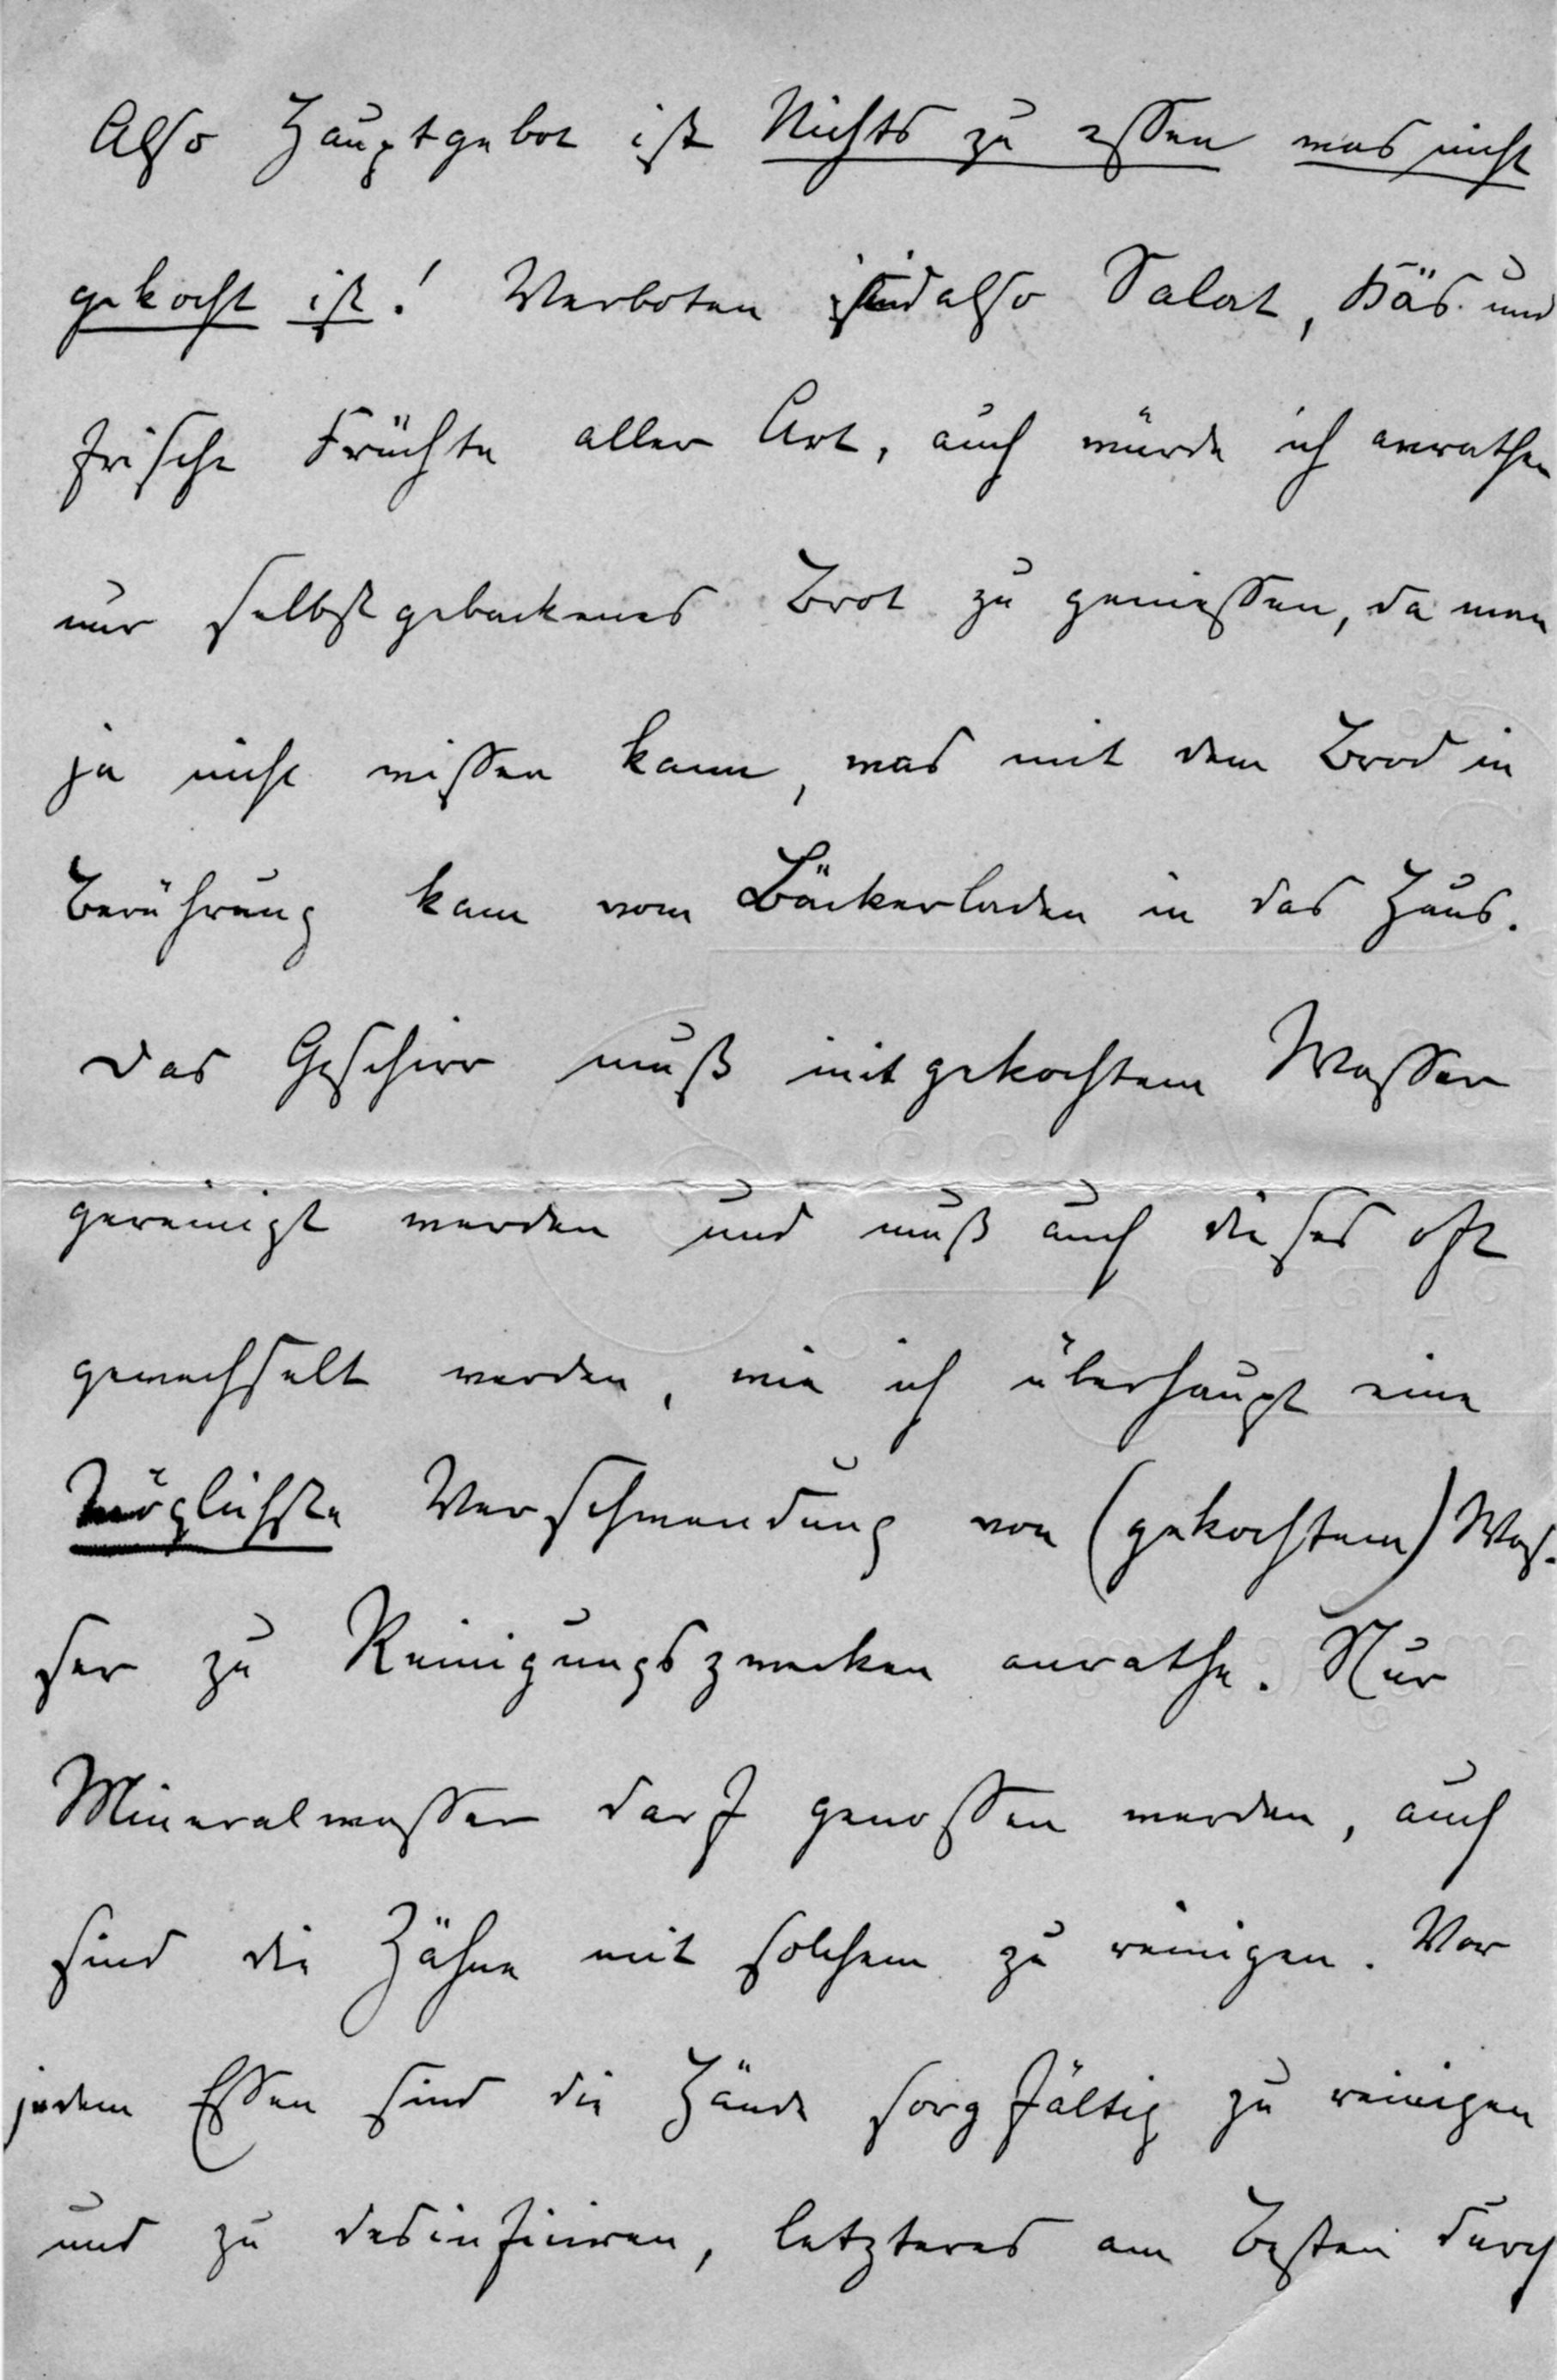 Also Hauptgebot ist Nichts zu essen was nicht
gekocht ist! Verboten sind also Salat, Käs und
frische Früchte aller Art, auch würde ich anrathen
nur selbstgebackenes Brot zu geniessen, da man
ja nicht wissen kann, was mit dem Brod in
Berührung kam vom Bäckerladen in das Haus.
Das Geschirr muß mit gekochtem Wasser
gereinigt werden und muß auch dieses oft
gewechselt werden, wie ich überhaupt eine
möglichste Verschwendung von (gekochtem) Was-
ser zu Reinigungszwecken anrathe. Nur
Mineralwasser darf genossen werden, auch
sind die Zähne mit solchem zu reinigen. Vor
jedem Essen sind die Hände sorgfältig zu reinigen
und zu desinficiren, letzteres am Besten durch